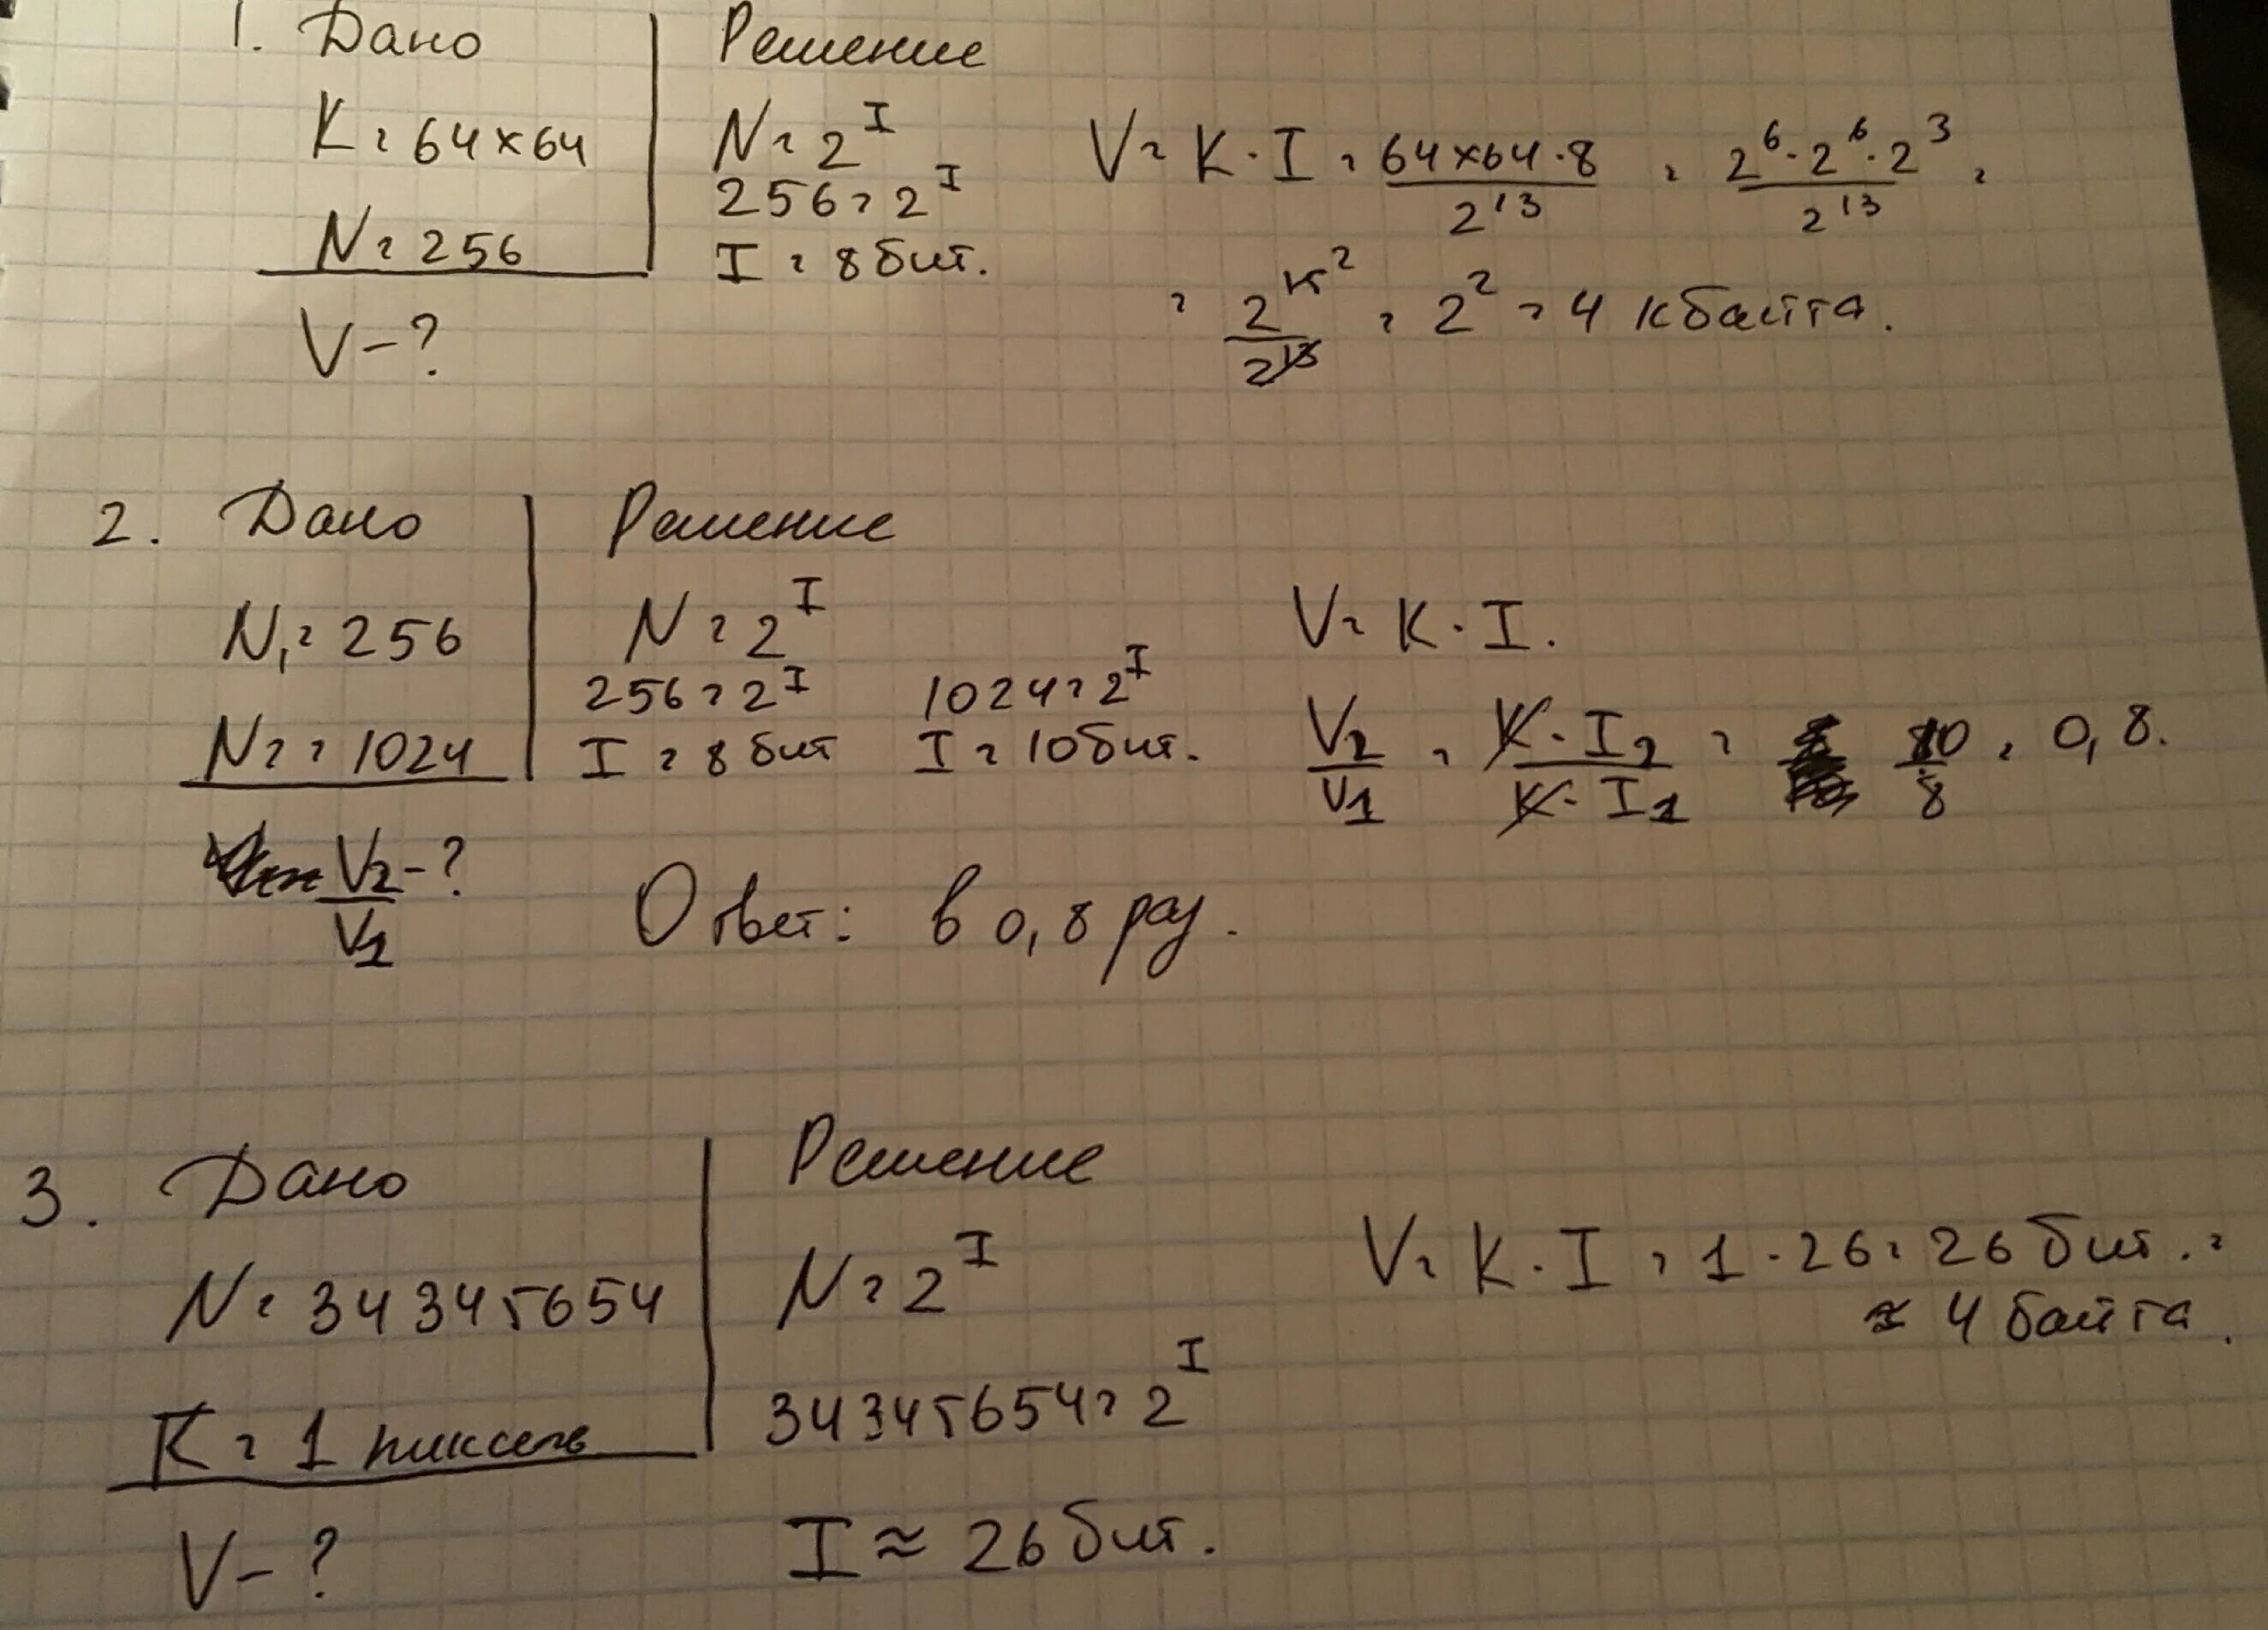 1. Дано | Решение
K = 64×64
N = 256
V – ?
N = 2^I
256 = 2^I
I = 8 бит.
V = K · I = 64×64·8 / 2^13 = 2^6 · 2^6 · 2^3 / 2^13 =
= 2^15 / 2^13 = 2^2 = 4 кбайта.
2. Дано | Решение
N1 = 256
N2 = 1024
V2 / V1 – ?
N = 2^I
256 = 2^I 1024 = 2^I
I = 8 бит I = 10 бит.
V = K · I.
V2 / V1 = K · I2 / K · I1 = 10 / 8 = 0,8.
Ответ: в 0,8 раз.
3. Дано | Решение
N = 34345654
K = 1 пиксель
V – ?
N = 2^I
34345654 = 2^I
I ≈ 26 бит.
V = K · I = 1 · 26 = 26 бит. =
≈ 4 байта.